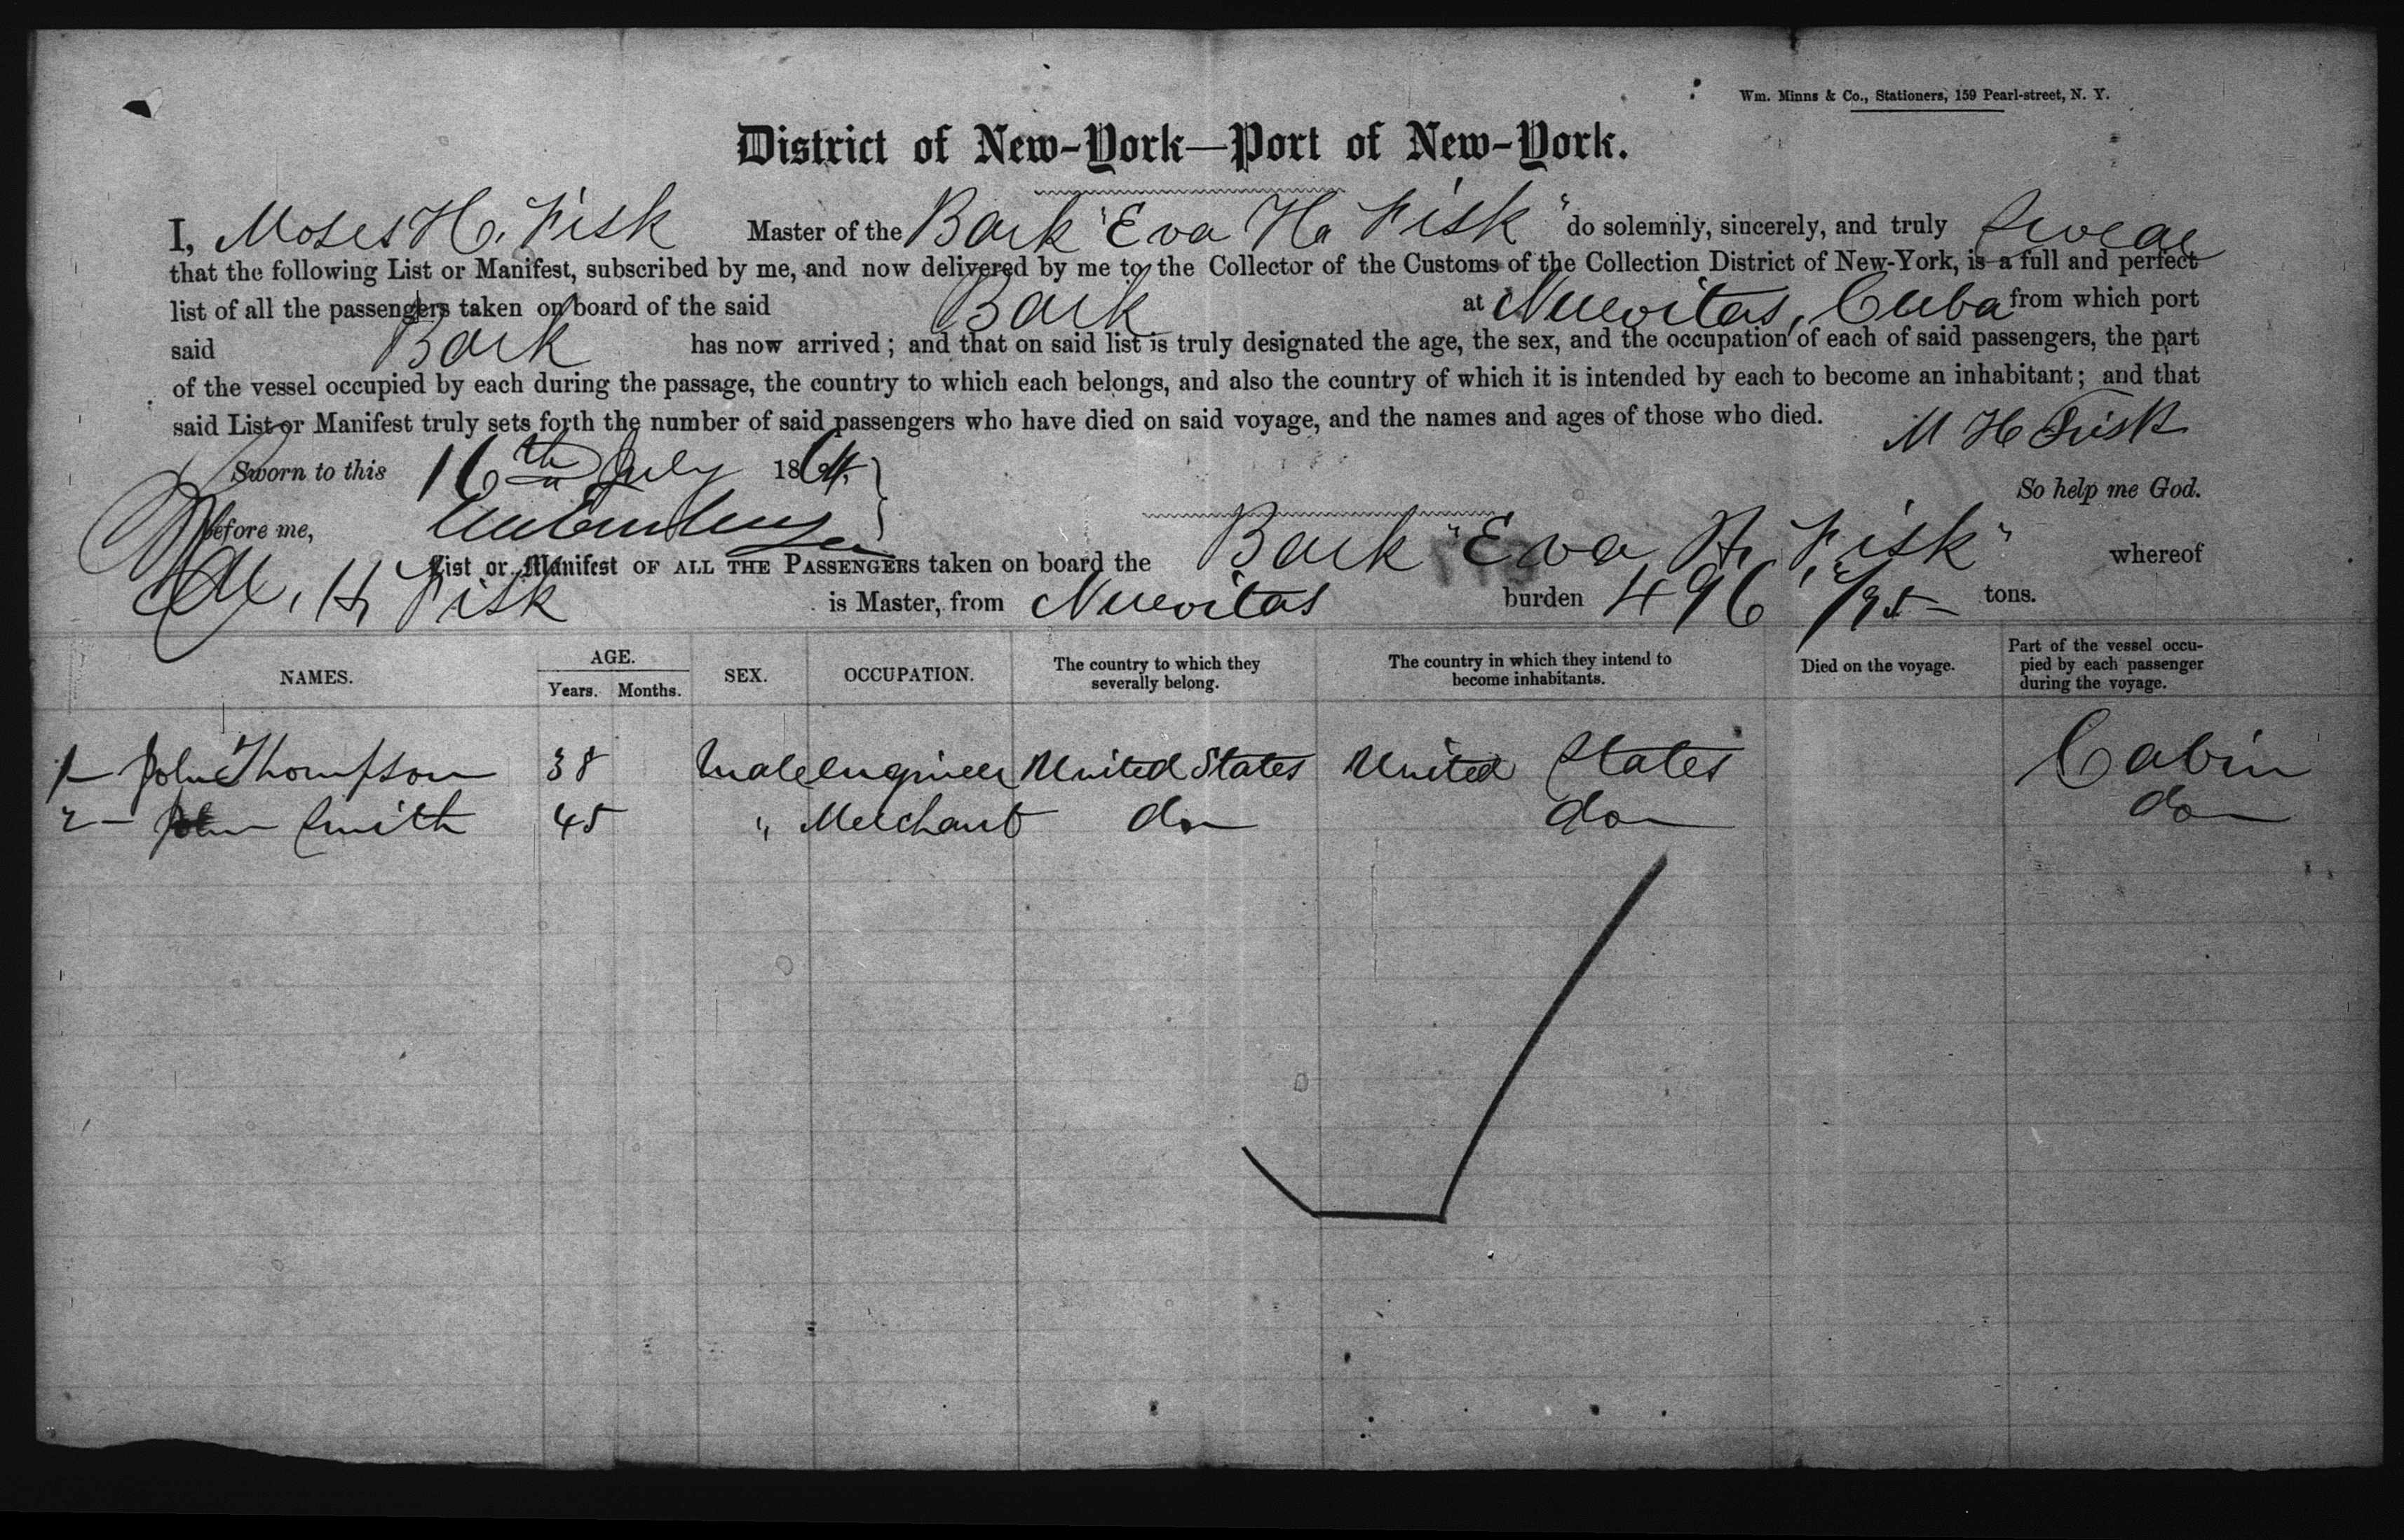 Wm. Minns & Co., Stationers, 159 Pearl-street, N. Y.
District of New-York—Port of New-York.
I, Moses H. Fisk Master of the Bark "Eva H. Fisk" do solemnly, sincerely, and truly swear
that the following List or Manifest, subscribed by me, and now delivered by me to the Collector of the Customs of the Collection District of New-York, is a full and perfect
list of all the passengers taken on board of the said Bark at Nuevitas, Cuba from which port
said Bark has now arrived; and that on said list is truly designated the age, the sex, and the occupation of each of said passengers, the part
of the vessel occupied by each during the passage, the country to which each belongs, and also the country of which it is intended by each to become an inhabitant; and that
said List or Manifest truly sets forth the number of said passengers who have died on said voyage, and the names and ages of those who died.
M H Fisk
Sworn to this 16th July 1864.
So help me God.
Before me,
List or Manifest OF ALL THE PASSENGERS taken on board the Bark "Eva H. Fisk" whereof
M. H. Fisk is Master, from Nuevitas burden 496 /95 tons.
NAMES. AGE. Years. Months. SEX. OCCUPATION. The country to which they severally belong. The country in which they intend to become inhabitants. Died on the voyage. Part of the vessel occupied by each passenger during the voyage.
1 — John Thompson 38 Male Engineer United States United States Cabin
2 — John Smith 45 " Merchant do do do